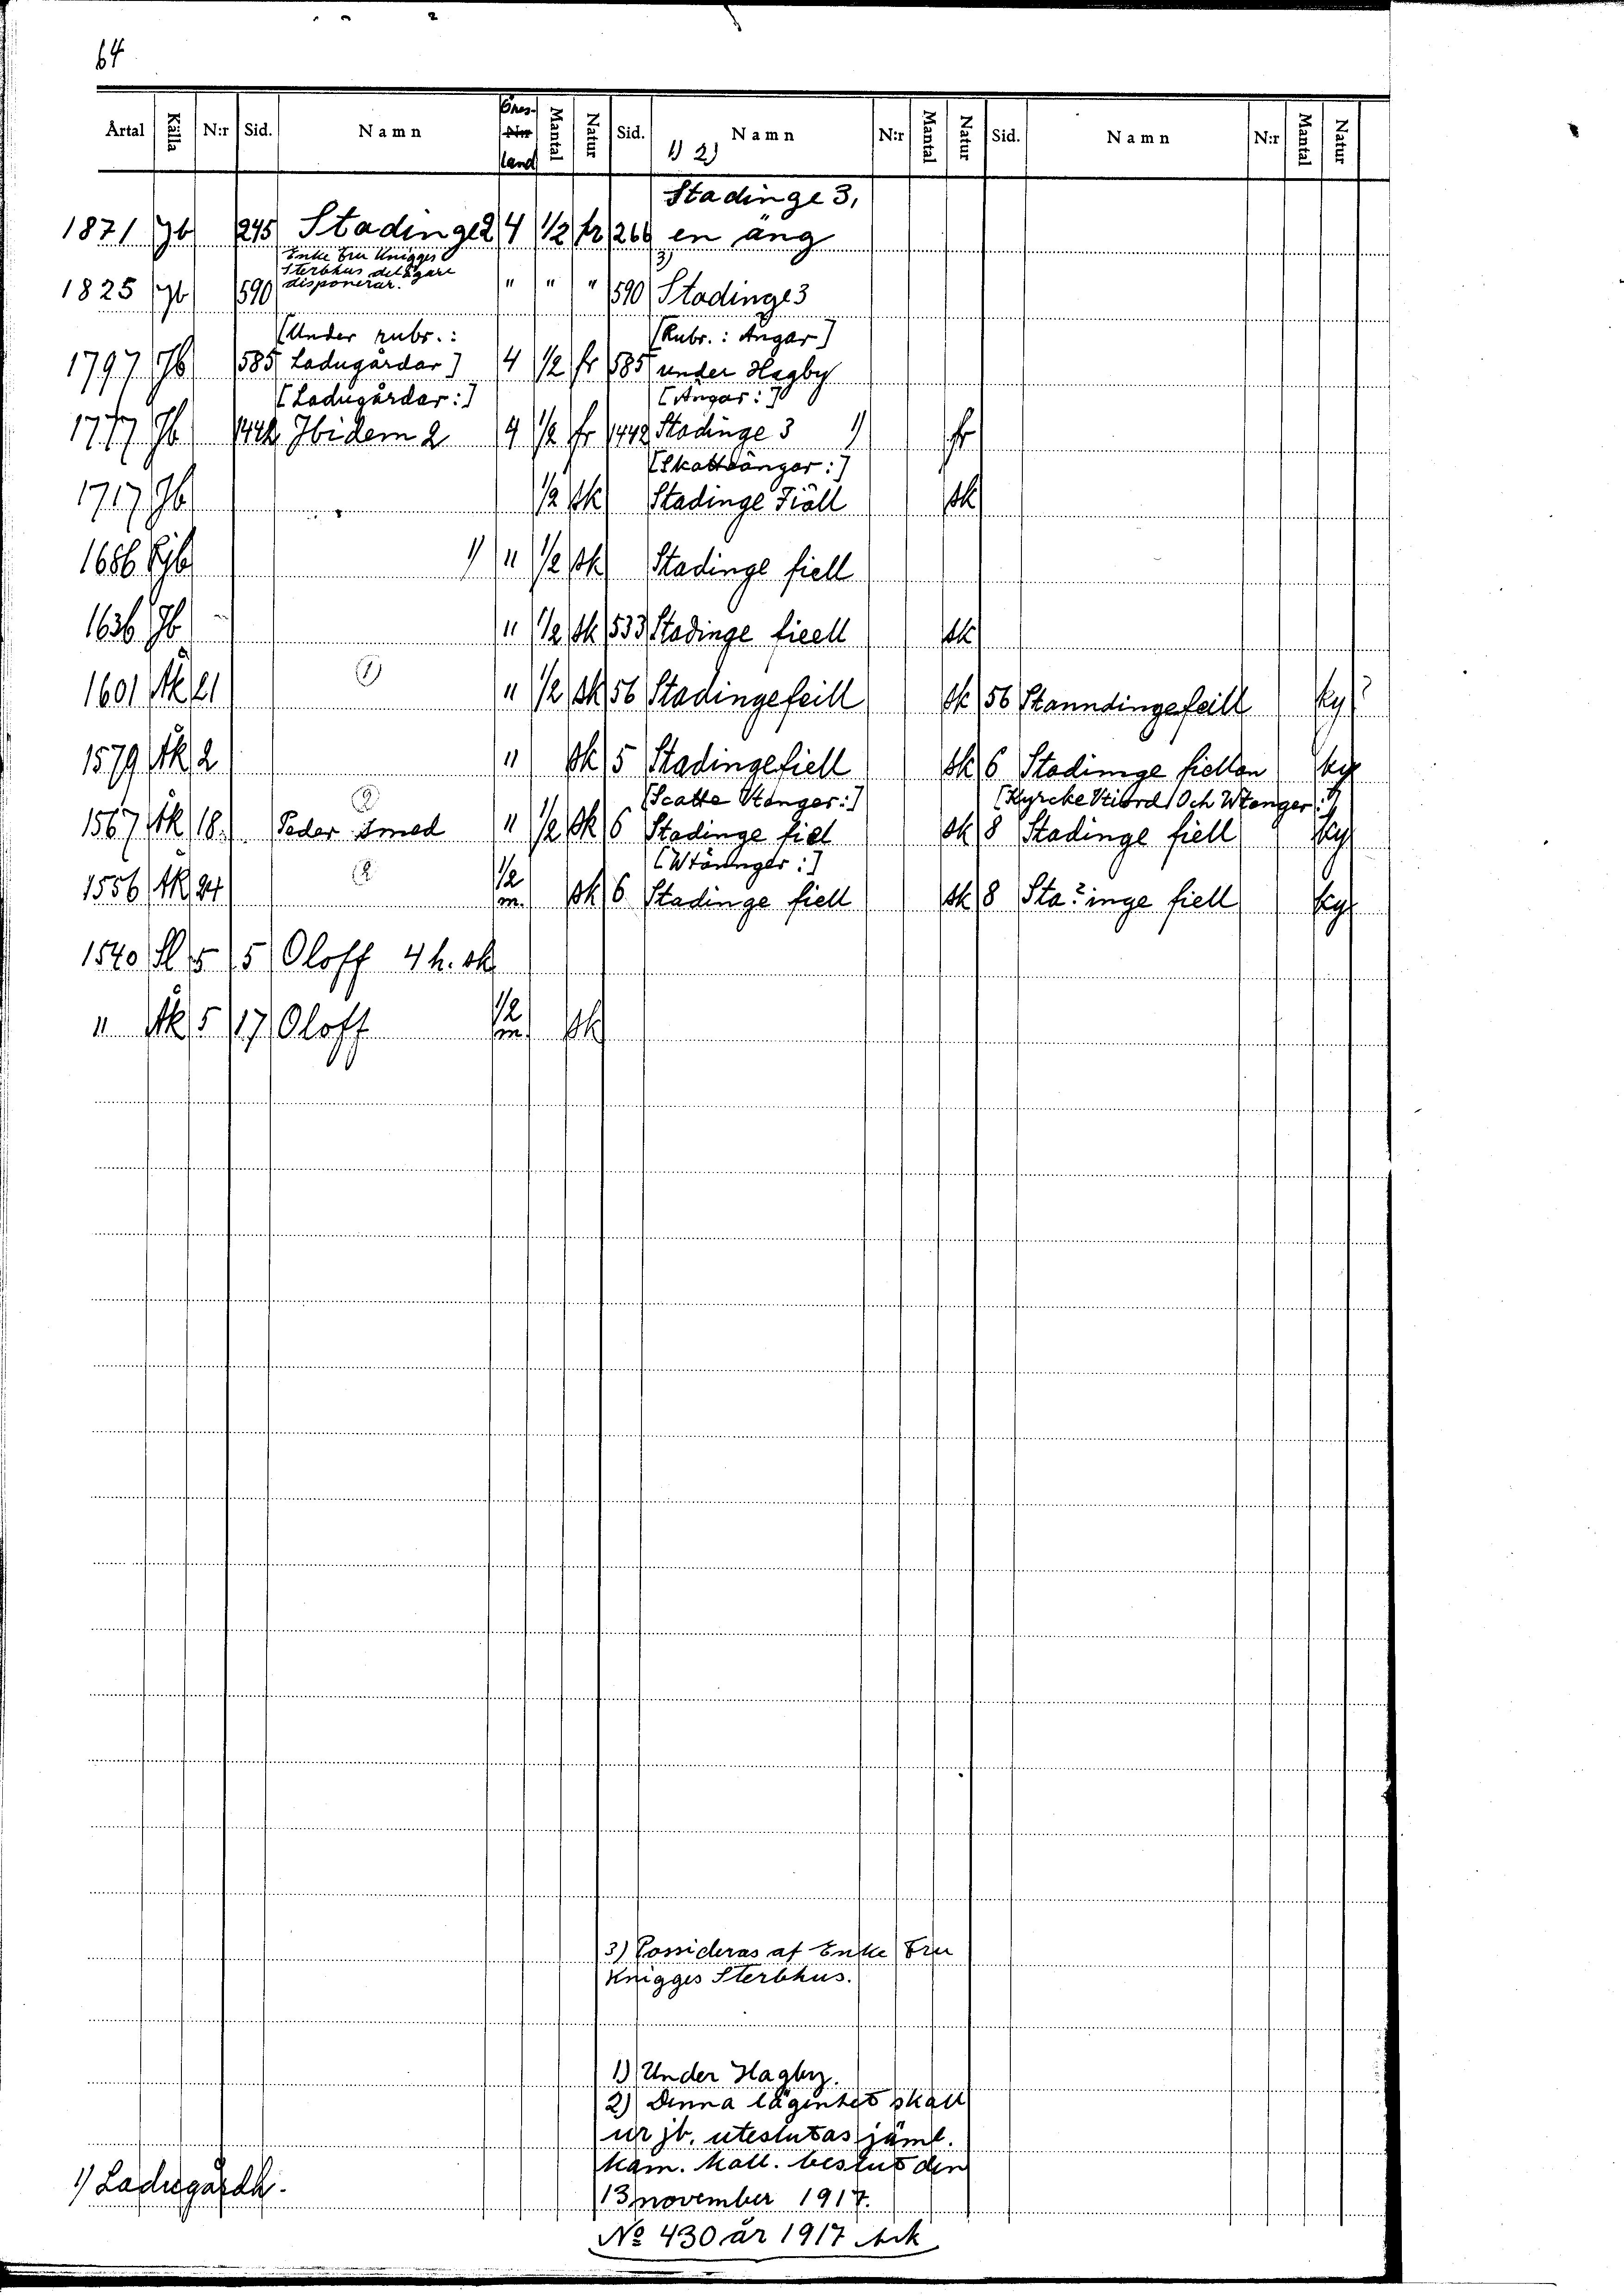 64
Årtal Källa N:r Sid. Namn Öres- land Mantal Natur Sid. Namn N:r Mantal Natur Sid. Namn N:r Mantal Natur
1) 2)
Stadinge 3,
1871 Jb 245 Stadinge 2 4 1/2 fr 266 en äng
Enke Fru Knigges
Sterbhus delägare
disponerar.
3)
1825 Jb 590 " " " 590 Stadinge 3
[Under rubr.: [Rubr.: Ängar]
1797 Jb 585 Ladugårdar] 4 1/2 fr 585 under Hagby
[Ladugårdar:] [Ängar:]
1777 Jb 1442 Ibidem 2 4 1/2 fr 1442 Stadinge 3 1) fr
[Skattängar:]
1717 Jb 1/2 sk Stadinge Fiäll sk
1686 Jb 1) " 1/2 sk Stadinge fiell
1636 Jb " 1/2 sk 533 Stadinge fieell sk
1601 Åk 21 (1) " 1/2 sk 56 Stadingefeill sk 56 Stanndingefeill ky?
1579 Åk 2 " sk 5 Stadingefiell sk 6 Stadinnge fiellan ky
(2) [Scatte Vtenger:] [Kyrcke Vtiord Och Wtenger:]
1567 Åk 18 Peder Smed " 1/2 sk 6 Stadinge fiel sk 8 Stadinge fiell ky
(2) [Wtännger:]
1556 Åk 24 1/2 m. sk 6 Stadinge fiell sk 8 Sta?inge fiell ky
1540 Sl 5 5 Oloff 4 h. sk
" Åk 5 17 Oloff 1/2 m. sk
3) Possideras af Enke Fru
Knigges Sterbhus.
1) Under Hagby.
2) Denna lägenhet skall
ur jb. uteslutas jäml.
Kam. Koll. beslut den
1) Ladugårdh.
13 november 1917.
No 430 år 1917